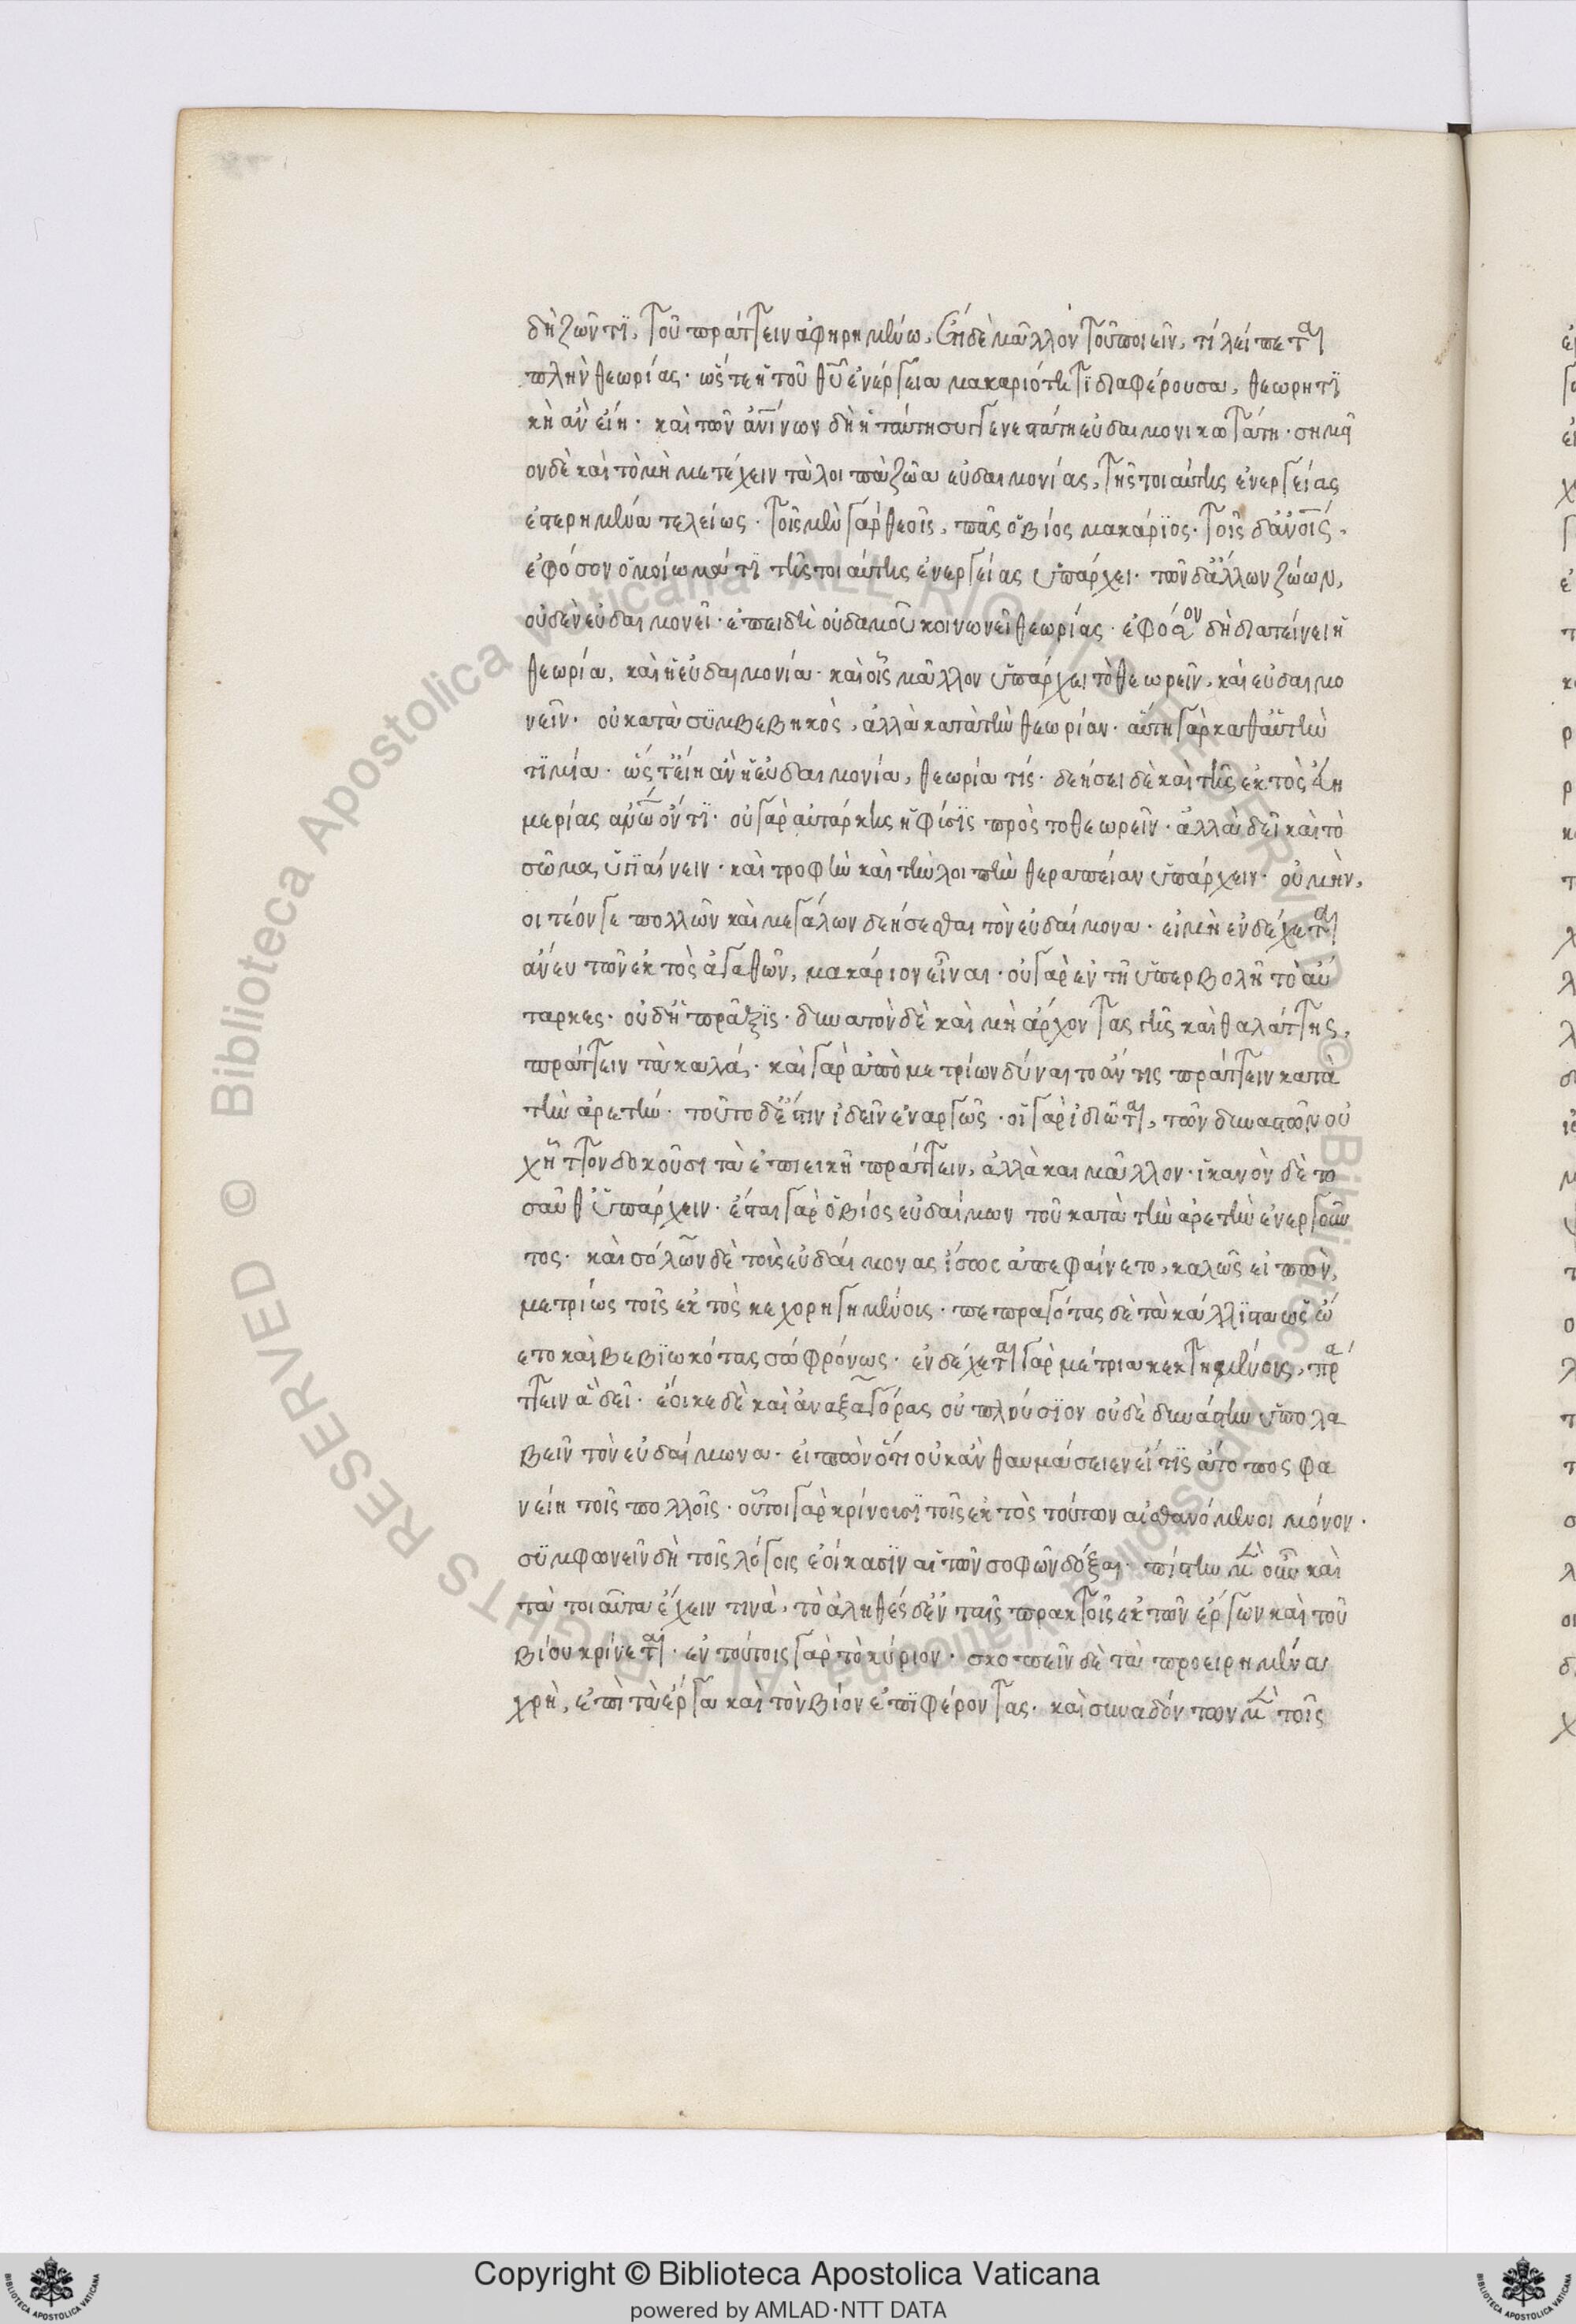 δὴ ζῶντϊ, τοῦ πράττειν ἀφηρημένω, ἔτι δὲ μᾶλλον τοῦ ποιεῖν, τί λείπεται
πλὴν θεωρίας· ὥστε ἡ τοῦ θῦ ἐνέργεια μακαριότητϊ διαφέρουσα, θεωρητϊ
κὴ ἂν εἴη· καὶ τῶν ἀνίνων δὴ ἡ ταύτη συγγενεστάτη εὐδαιμονικωτάτη· σημεῖ
ον δὲ καὶ τὸ μὴ μετέχειν τὰ λοιπὰ ζῶα εὐδαιμονίας, τῆς τοιαύτης ἐνεργείας
ἐστερημένα τελείως· τοῖς μὲν γὰρ θεοῖς, πᾶς ὁ βίος μακάρϊος· τοῖς δ ἀνοις,
ἐφόσον ὁμοίωμά τϊ τῆς τοιαύτης ἐνεργείας ὑπάρχει· τῶν δ ἄλλων ζώων,
οὐδὲν εὐδαιμονεῖ· ἐπειδὴ οὐδαμοῦ κοινωνεῖ θεωρίας· ἐφόσον δὴ διατείνει ἡ
θεωρία, καὶ ἡ εὐδαιμονία· καὶ οἷς μᾶλλον ὑπάρχει τὸ θεωρεῖν, καὶ εὐδαιμο
νεῖν· οὐ κατὰ συμβεβηκὸς, ἀλλὰ κατὰ τὴν θεωρίαν· αὕτη γὰρ καθ αὑτὴν
τϊμία· ὥστ εἴη ἂν ἡ εὐδαιμονία, θεωρία τίς· δεήσει δὲ καὶ τῆς ἐκτὸς εὐη
μερίας ανω ὄντϊ· οὐ γὰρ αὐτάρκης ἡ φύσϊς πρὸς το θεωρεῖν· ἀλλὰ δεῖ καὶ τὸ
σῶμα ὑγϊαίνειν· καὶ τροφὴν καὶ τὴν λοιπὴν θεραπείαν ὑπάρχειν· οὐ μὴν,
οιητέον γε πολλῶν καὶ μεγάλων δεήσεσθαι τὸν εὐδαίμονα· εἰ μὴ ἐνδέχεται
ἄνευ τῶν ἐκτὸς ἀγαθῶν, μακάριον εἶναι· οὐ γὰρ ἐν τῆ ὑπερβολῆ τὸ αὔ
ταρκες· οὐδ ἡ πρᾶξϊς· δυνατὸν δὲ καὶ μὴ ἄρχοντας γῆς καὶ θαλάττης,
πράττειν τὰ καλά· καὶ γὰρ ἀπὸ μετρίων δύναιτο ἄν τις πράττειν κατὰ
τὴν ἀρετήν· τοῦτο δ ἔστιν ἰδεῖν ἐναργῶς· οἱ γὰρ ἰδιῶται, τῶν δυναστῶν οὐ
χ ἧττον δοκοῦσι τὰ ἐπιεικῆ πράττειν, ἀλλὰ και μᾶλλον· ἱκανὸν δὲ το
σαῦθ ὑπάρχειν· ἔσται γὰρ ὁ βίος εὐδαίμων τοῦ κατὰ τὴν ἀρετὴν ἐνεργοῦν
τος· καὶ σόλων δὲ τοὺς εὐδαίμονας ἴσως ἀπεφαίνετο, καλῶς εἰπὼν,
μετρίως τοῖς ἐκτὸς κεχορηγημένους· πεπραγότας δὲ τὰ κάλλϊστα ὡς ᾤ
ετο καὶ βεβϊωκότας σωφρόνως· ἐνδέχεται γὰρ μέτρια κεκτημένους, πρά
ττειν ἃ δεῖ· ἔοικε δὲ καὶ ἀναξαγόρας οὐ πλούσϊον οὐδὲ δυνάστην ὑπολα
βεῖν τὸν εὐδαίμωνα· εἰπὼν ὅτι οὐκ ἂν θαυμάσειεν εἴ τϊς ἄτοπος φα
νείη τοῖς πολλοῖς· οὗτοι γὰρ κρίνουσϊ τοῖς ἐκτὸς τούτων αἰσθανόμενοι μόνον·
συμφωνεῖν δὴ τοῖς λόγοις ἐοίκασϊν αἱ τῶν σοφῶν δόξαι· πίστιν μὲν οὖν καὶ
τὰ τοιαῦτα ἔχειν τινὰ, τὸ ἀληθές δ ἐν ταῖς πρακτοῖς ἐκ τῶν ἔργων καὶ τοῦ
βίου κρίνεται· ἐν τούτοις γὰρ τὸ κύριον· σκοπεῖν δὲ τὰ προειρημένα
χρὴ, ἐπὶ τὰ ἔργα καὶ τὸν βίον ἐπϊφέροντας· καὶ συναδόντων μὲν τοῖς
Copyright © Biblioteca Apostolica Vaticana
powered by AMLAD·NTT DATA